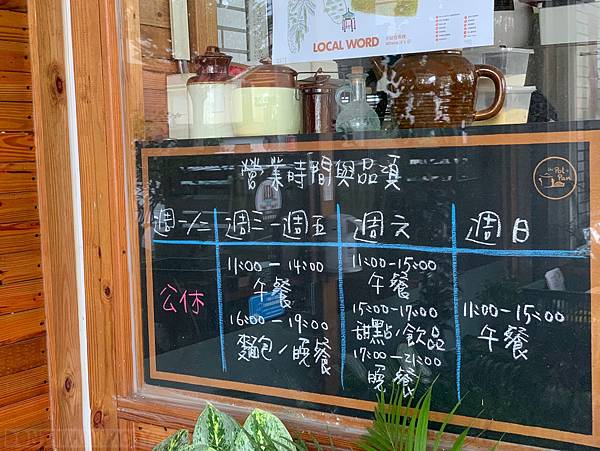 LOCAL WORD
營業時間與品項
Pot & Pan
週一/二
週三-週五
週六
週日
公休
11:00-14:00
午餐
16:00-19:00
麵包/晚餐
11:00-15:00
午餐
15:00-17:00
甜點/飲品
17:00-21:00
晚餐
11:00-15:00
午餐